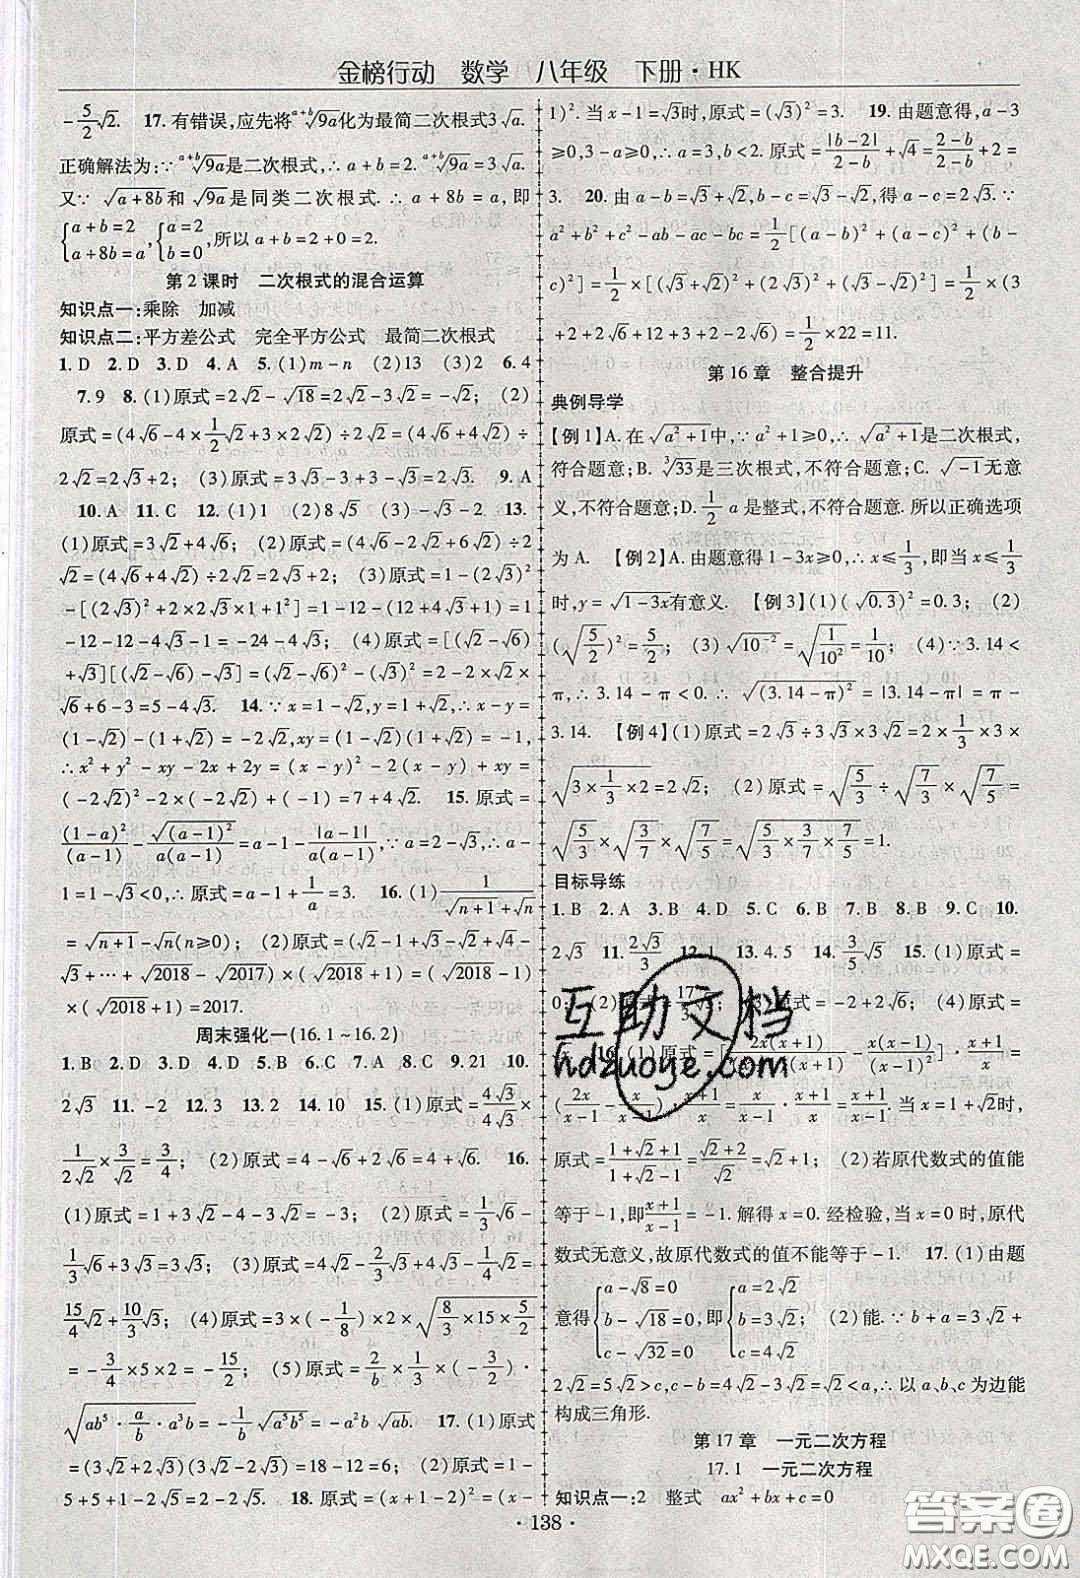 金榜行动 数学 八年级 下册·HK
-5/2√2. 17.有错误,应先将ᵃ⁺ᵇ√9a化为最简二次根式3√a.
正确解法为:∵ᵃ⁺ᵇ√9a是二次根式,∴a+b=2.ᵃ⁺ᵇ√9a=3√a.
又∵√(a+8b)和√9a是同类二次根式.∴a+8b=a,即
{a+b=2, a+8b=a, {a=2, b=0, 所以a+b=2+0=2.
第2课时 二次根式的混合运算
知识点一:乘除 加减
知识点二:平方差公式 完全平方公式 最简二次根式
1.D 2.D 3.D 4.A 5.(1)m-n (2)13 (3)2 6.4
7.9 8.(1)原式=2√2-√18=2√2-3√2=-√2; (2)
原式=(4√6-4×1/2√2+3×2√2)÷2√2=(4√6+4√2)÷
2√2=2√3+2; (3)原式=3√3-3√3+2√3=2√3. 9.A
10.A 11.C 12.(1)1 (2)8√5 (3)-√3-2 13.
(1)原式=3√2+4√2=7√2; (2)原式=(4√6+4√2)÷2
√2=4√6÷2√2+4√2÷2√2=2√3+2; (3)原式=1-12
-[(2√3)²+2×2√3×1+1²]=1-12-(12+4√3+1)=
1-12-12-4√3-1=-24-4√3; (4)原式=[(√2-√6)
+√3][(√2-√6)-√3]=(√2-√6)²-(√3)²=2-4
√3+6-3=5-4√3. 14.∵x=1-√2,y=1+√2,∴x-y=
(1-√2)-(1+√2)=-2√2,xy=(1-√2)(1+√2)=-1,
∴x²+y²-xy-2x+2y=(x-y)²-2(x-y)+xy=
(-2√2)²-2×(-2√2)+(-1)=7+4√2. 15.原式=
(1-a)²/(a-1)-√((a-1)²)/(a(a-1))=a-1-|a-1|/(a(a-1)),∵a=2-√3,∴a-
1=1-√3<0,∴原式=a-1+1/a=3. 16.(1)1/(√(n+1)+√n)
=√(n+1)-√n(n≥0); (2)原式=(√2-1+√3-√2+√4-
√3+…+√2018-√2017)×(√2018+1)=(√2018-1)
×(√2018+1)=2017.
周末强化一(16.1~16.2)
1.B 2.D 3.D 4.B 5.B 6.C 7.C 8.C 9.21 10.
2√3 11.-2 12.3 13.2 14.10 15.(1)原式=4√3/√3×
1/(2√2)×3/√2=3/4; (2)原式=4-√6+2√6=4+√6. 16.
(1)原式=1+3√2-4-3√2=-3; (2)原式=1/3√6-
3√3×√2=-8/3√6; (3)原式=4√2-1/4√2+3√3+1/3√3=
15/4√2+10/3√3; (4)原式=3×(-1/8)×2×√(8/3×15×5/2)
=-3/4×5×2=-15/2; (5)原式=2/b×1/3×(-3/2)·
√(ab⁵·a/b·a³)=-1/b√(a⁵b⁵)=-a²b√ab. 17.(1)原式
=(3√2+2√3)(3√2-2√3)=18-12=6; (2)原式=1-
5+5+1+2√5=2+2√5. 18.原式=(x+1-2)²=(x-
1)².当x-1=√3时,原式=(√3)²=3. 19.由题意得,a-3
≥0,3-a≥0,∴a=3,b<2.原式=|b-2|/(2-b)+√4=(2-b)/(2-b)+2=
3. 20.由a-b=√3+√2,b-c=√3-√2,得a-c=2√3.∵
a²+b²+c²-ab-ac-bc=1/2[(a-b)²+(a-c)²+(b-
c)²]=1/2[(√3+√2)²+(2√3)²+(√3-√2)²]=1/2×(3
+2+2√6+12+3+2-2√6)=1/2×22=11.
第16章 整合提升
典例导学
【例1】A.在√(a²+1)中,∵a²+1≥0,∴√(a²+1)是二次根式,
符合题意;B.³√33是三次根式,不符合题意;C.√-1无意
义,不符合题意;D.1/2 a是整式,不符合题意.所以正确选项
为A. 【例2】A.由题意得1-3x≥0,∴x≤1/3,即当x≤1/3
时,y=√(1-3x)有意义. 【例3】(1)(√0.3)²=0.3; (2)
(√(5/2))²=5/2; (3)√(10⁻²)=√(1/10²)=1/10; (4)∵3.14<
π,∴3.14-π<0,∴√((3.14-π)²)=|3.14-π|=π-
3.14. 【例4】(1)原式=2√3÷√3×√2=2×1/3×3×
√(3×1/3×2)=2√2; (2)原式=√(5/3)÷√(7/3)×√(7/5)=
√(5/3)×√(3/7)×√(7/5)=√(5/3×3/7×7/5)=1.
目标导练
1.B 2.A 3.B 4.D 5.C 6.B 7.B 8.B 9.C 10.
2√3 11.2√3/3 12.1 13.4.5 14.3/5√5 15.(1)原式=
0; (2)原式=17/3√3; (3)原式=-2+2√6; (4)原式=
16.(1)原式=[2x(x+1)/((x-1)(x+1))-x(x-1)/((x+1)(x-1))]·(x+1)/x=
(2x/(x-1)-x/(x-1))·(x+1)/x=x/(x-1)·(x+1)/x=(x+1)/(x-1).当x=1+√2时,
原式=(1+√2+1)/(1+√2-1)=(√2+2)/√2=√2+1; (2)若原代数式的值能
等于-1,即(x+1)/(x-1)=-1.解得x=0.经检验,当x=0时,原代
数式无意义,故原代数式的值不能等于-1. 17.(1)由题
意得{a-√8=0, b-√18=0, c-√32=0, 即{a=2√2, b=3√2, c=4√2; (2)能.∵b+a=3√2+
2√2=5√2>c,c-b=4√2-3√2=√2<a,∴以a、b、c为边能
构成三角形.
第17章 一元二次方程
17.1 一元二次方程
知识点一:2 整式 ax²+bx+c=0
·138·
互助文档
hdzuoye.com
答案圈
MXQE.COM